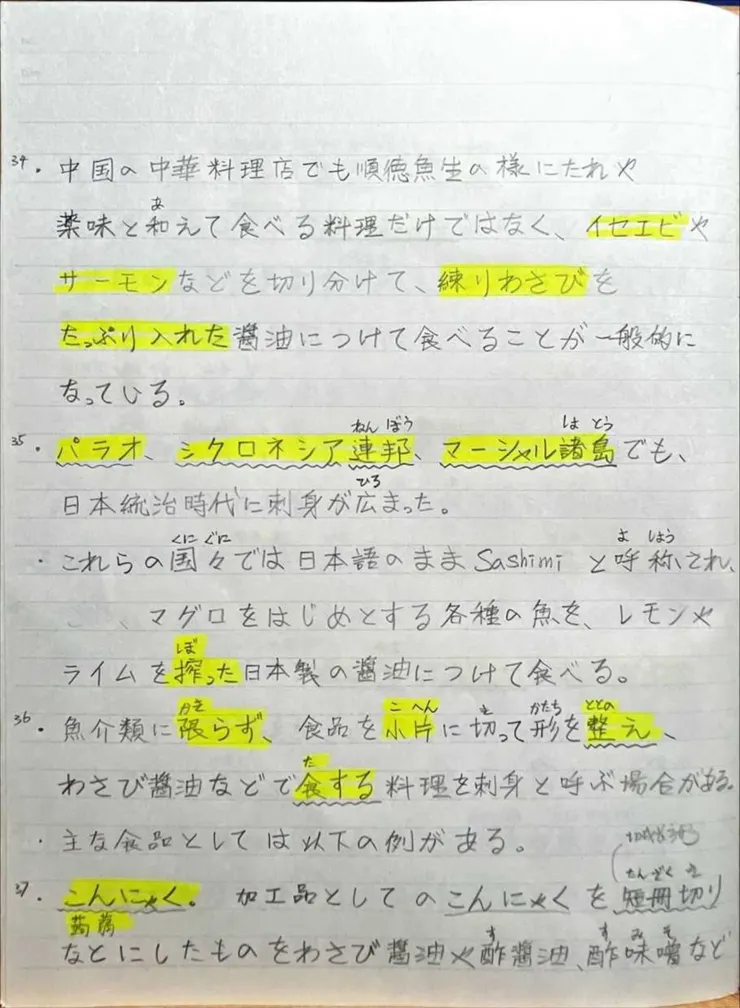 34. 中国の中華料理店でも順徳魚生の様にたれや
あ
薬味と和えて食べる料理だけではなく、イセエビや
サーモンなどを切り分けて、練りわさびを
たっぷり入れた醤油につけて食べることが一般的に
なっている。
ねん ぽう はとう
35. パラオ、シクロネシア連邦、マーシャル諸島でも、
ひろ
日本統治時代に刺身が広まった。
くにぐに よ しょう
・これらの国々では日本語のままSashimiと呼称され、
マグロをはじめとする各種の魚を、レモンや
ぼ
ライムを搾った日本製の醤油につけて食べる。
かぎ こへん き かたち ととの
36. 魚介類に限らず、食品を小片に切って形を整え、
た
わさび醤油などで食する料理を刺身と呼ぶ場合がある。
・主な食品としては以下の例がある。
たんざく き
37. こんにゃく。 加工品としてのこんにゃくを短冊切り
蒟蒻
す す み そ
なとにしたものをわさび醤油や酢醤油、酢味噌など